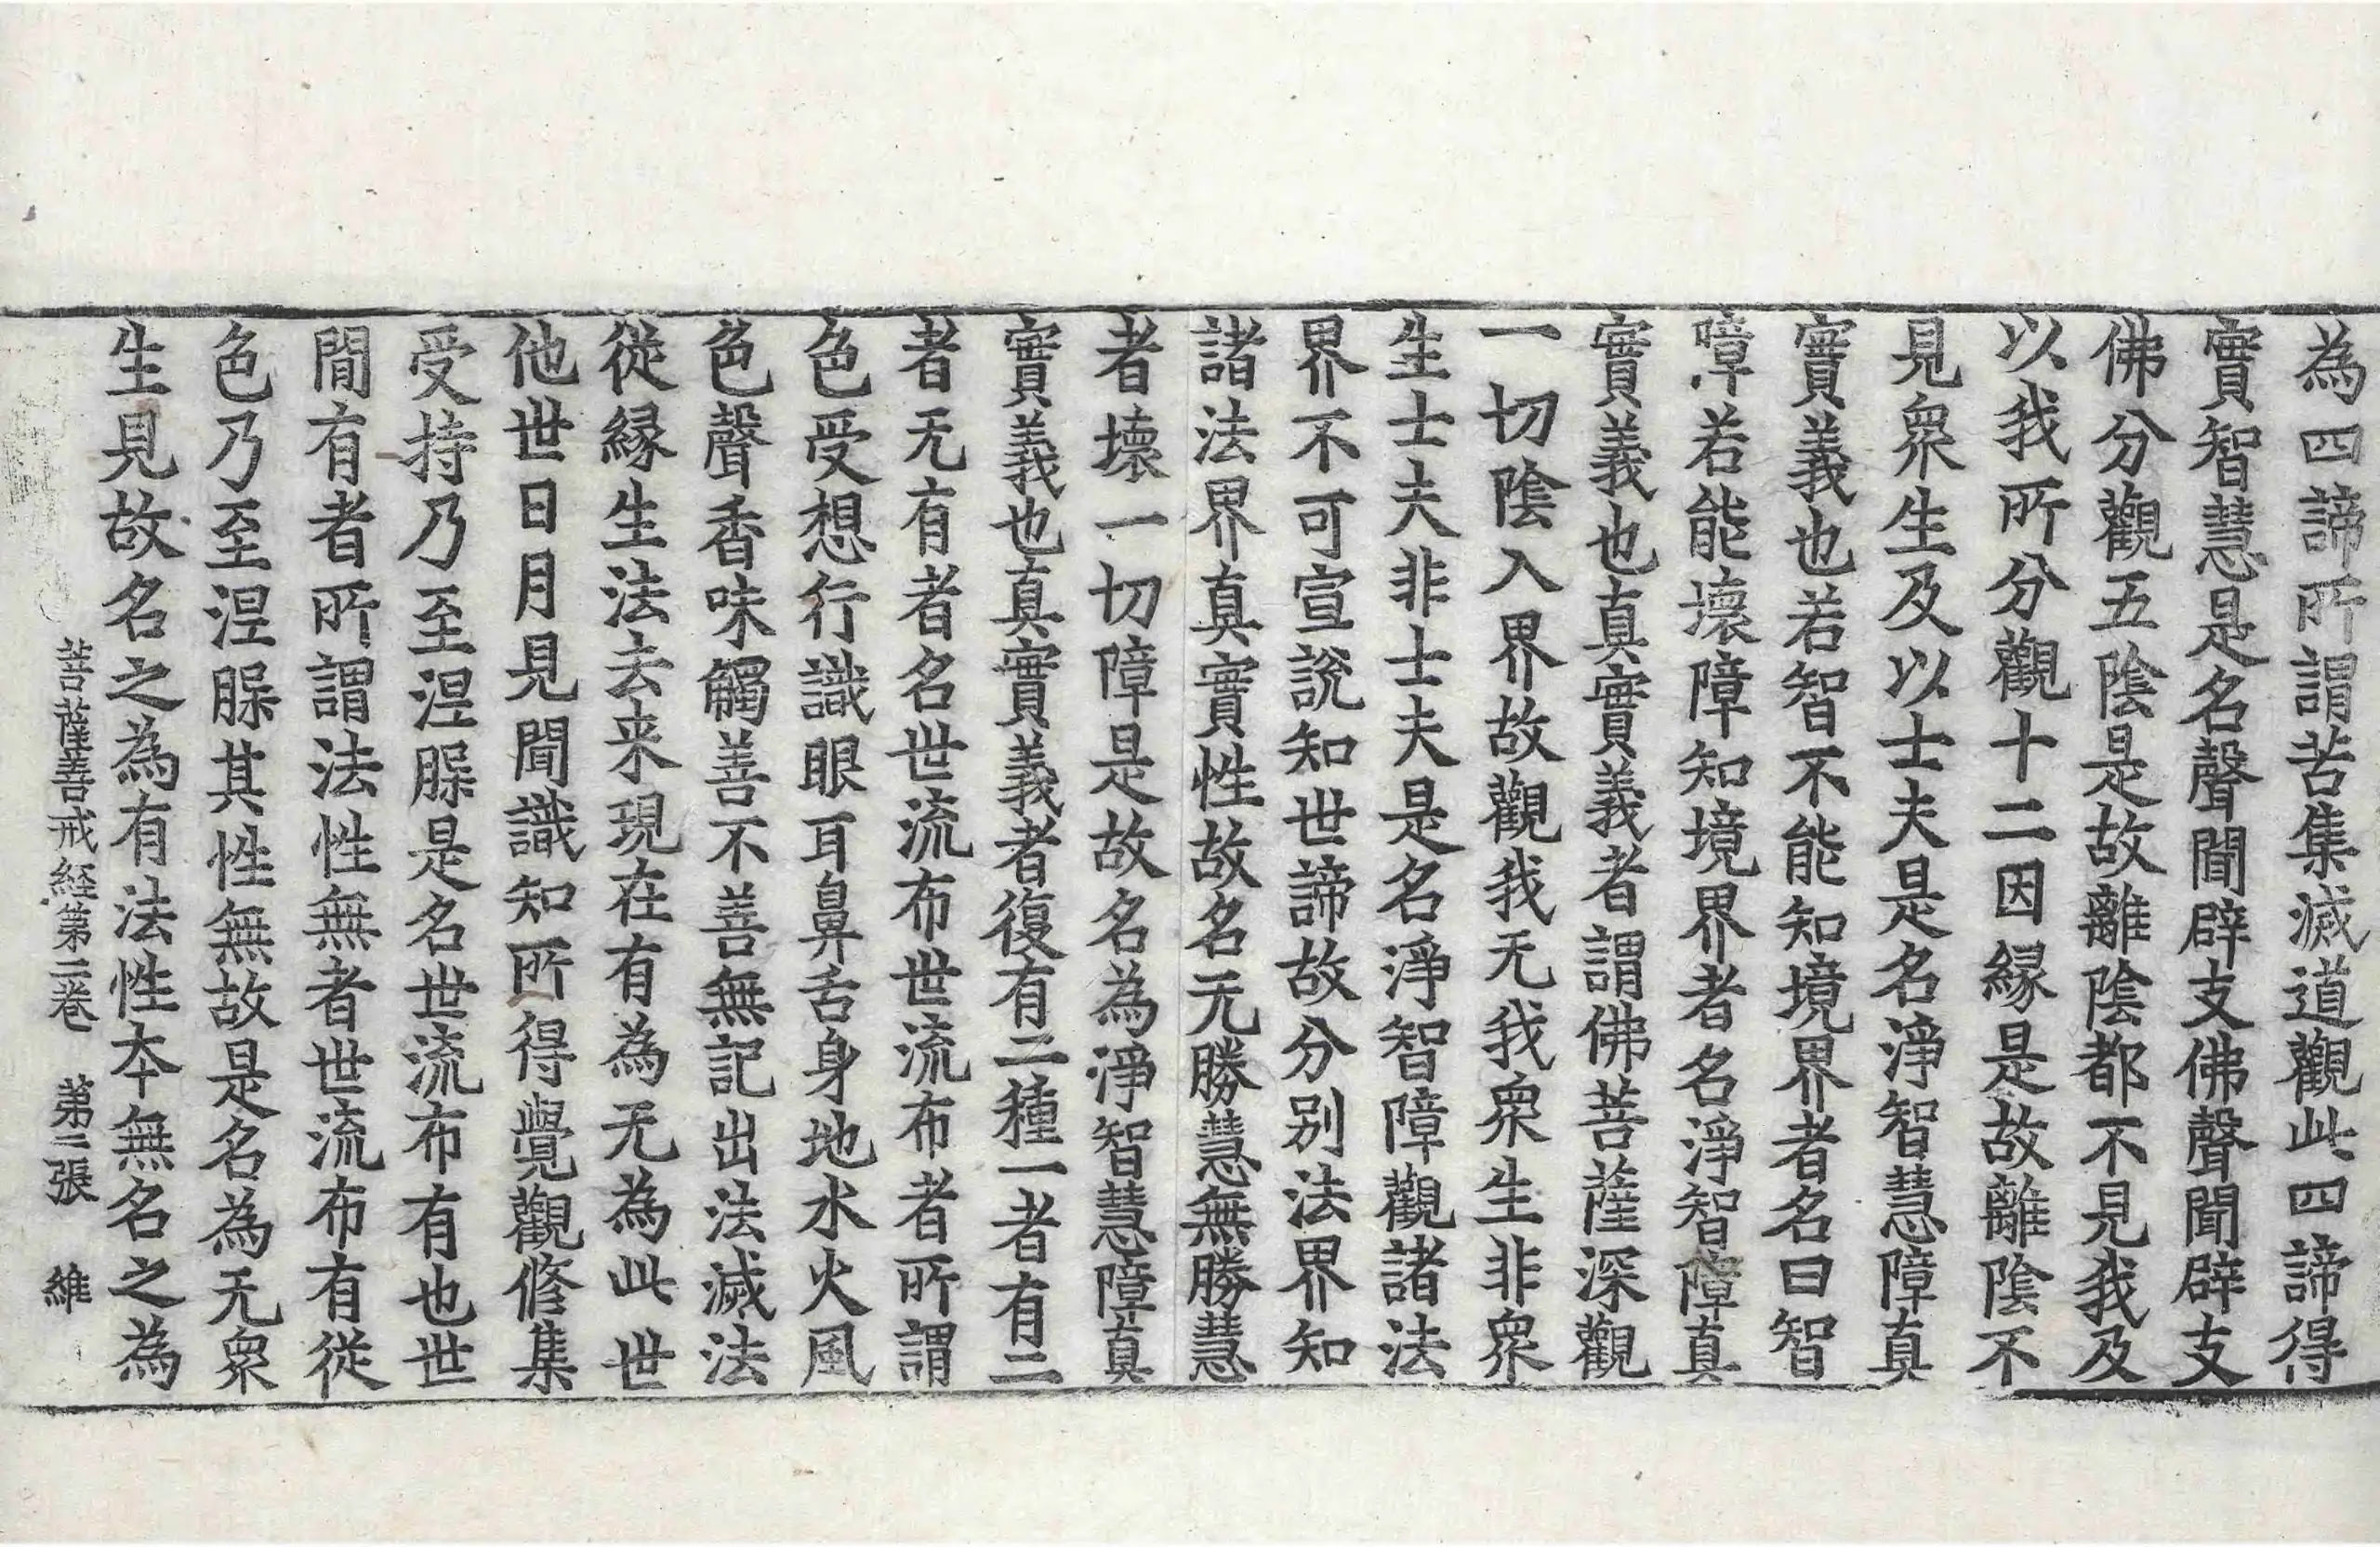 為四諦所謂苦集滅道觀此四諦得
實智慧是名聲聞辟支佛聲聞辟支
佛分觀五陰是故離陰都不見我及
以我所分觀十二因緣是故離陰不
見衆生及以士夫是名淨智慧障真
實義也若智不能知境界者名曰智
障若能壞障知境界者名淨智障真
實義也真實義者謂佛菩薩深觀
一切陰入界故觀我无我衆生非衆
生士夫非士夫是名淨智障觀諸法
界不可宣說知世諦故分別法界知
諸法界真實性故名无勝慧無勝慧
者壞一切障是故名為淨智慧障真
實義也真實義者復有二種一者有二
者无有者名世流布世流布者所謂
色受想行識眼耳鼻舌身地水火風
色聲香味觸善不善無記出法滅法
從緣生法去来現在有為无為此世
他世日月見聞識知所得覺觀修集
受持乃至涅槃是名世流布有也世
間有者所謂法性無者世流布有從
色乃至涅槃其性無故是名為无衆
生見故名之為有法性本無名之為
菩薩善戒経第二卷 第二張 維